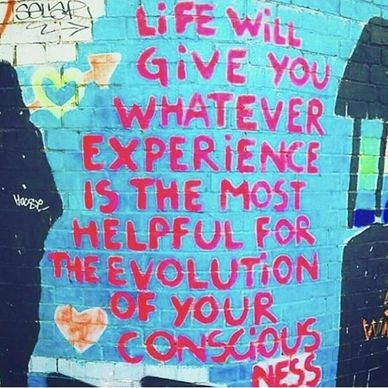 LiFE WiLL
GiVE YOU
WHATEVER
EXPERiENCE
IS THE MOST
HELPFUL FOR
THE EVOLUTION
OF YOUR
CONSCiOUS
NESS